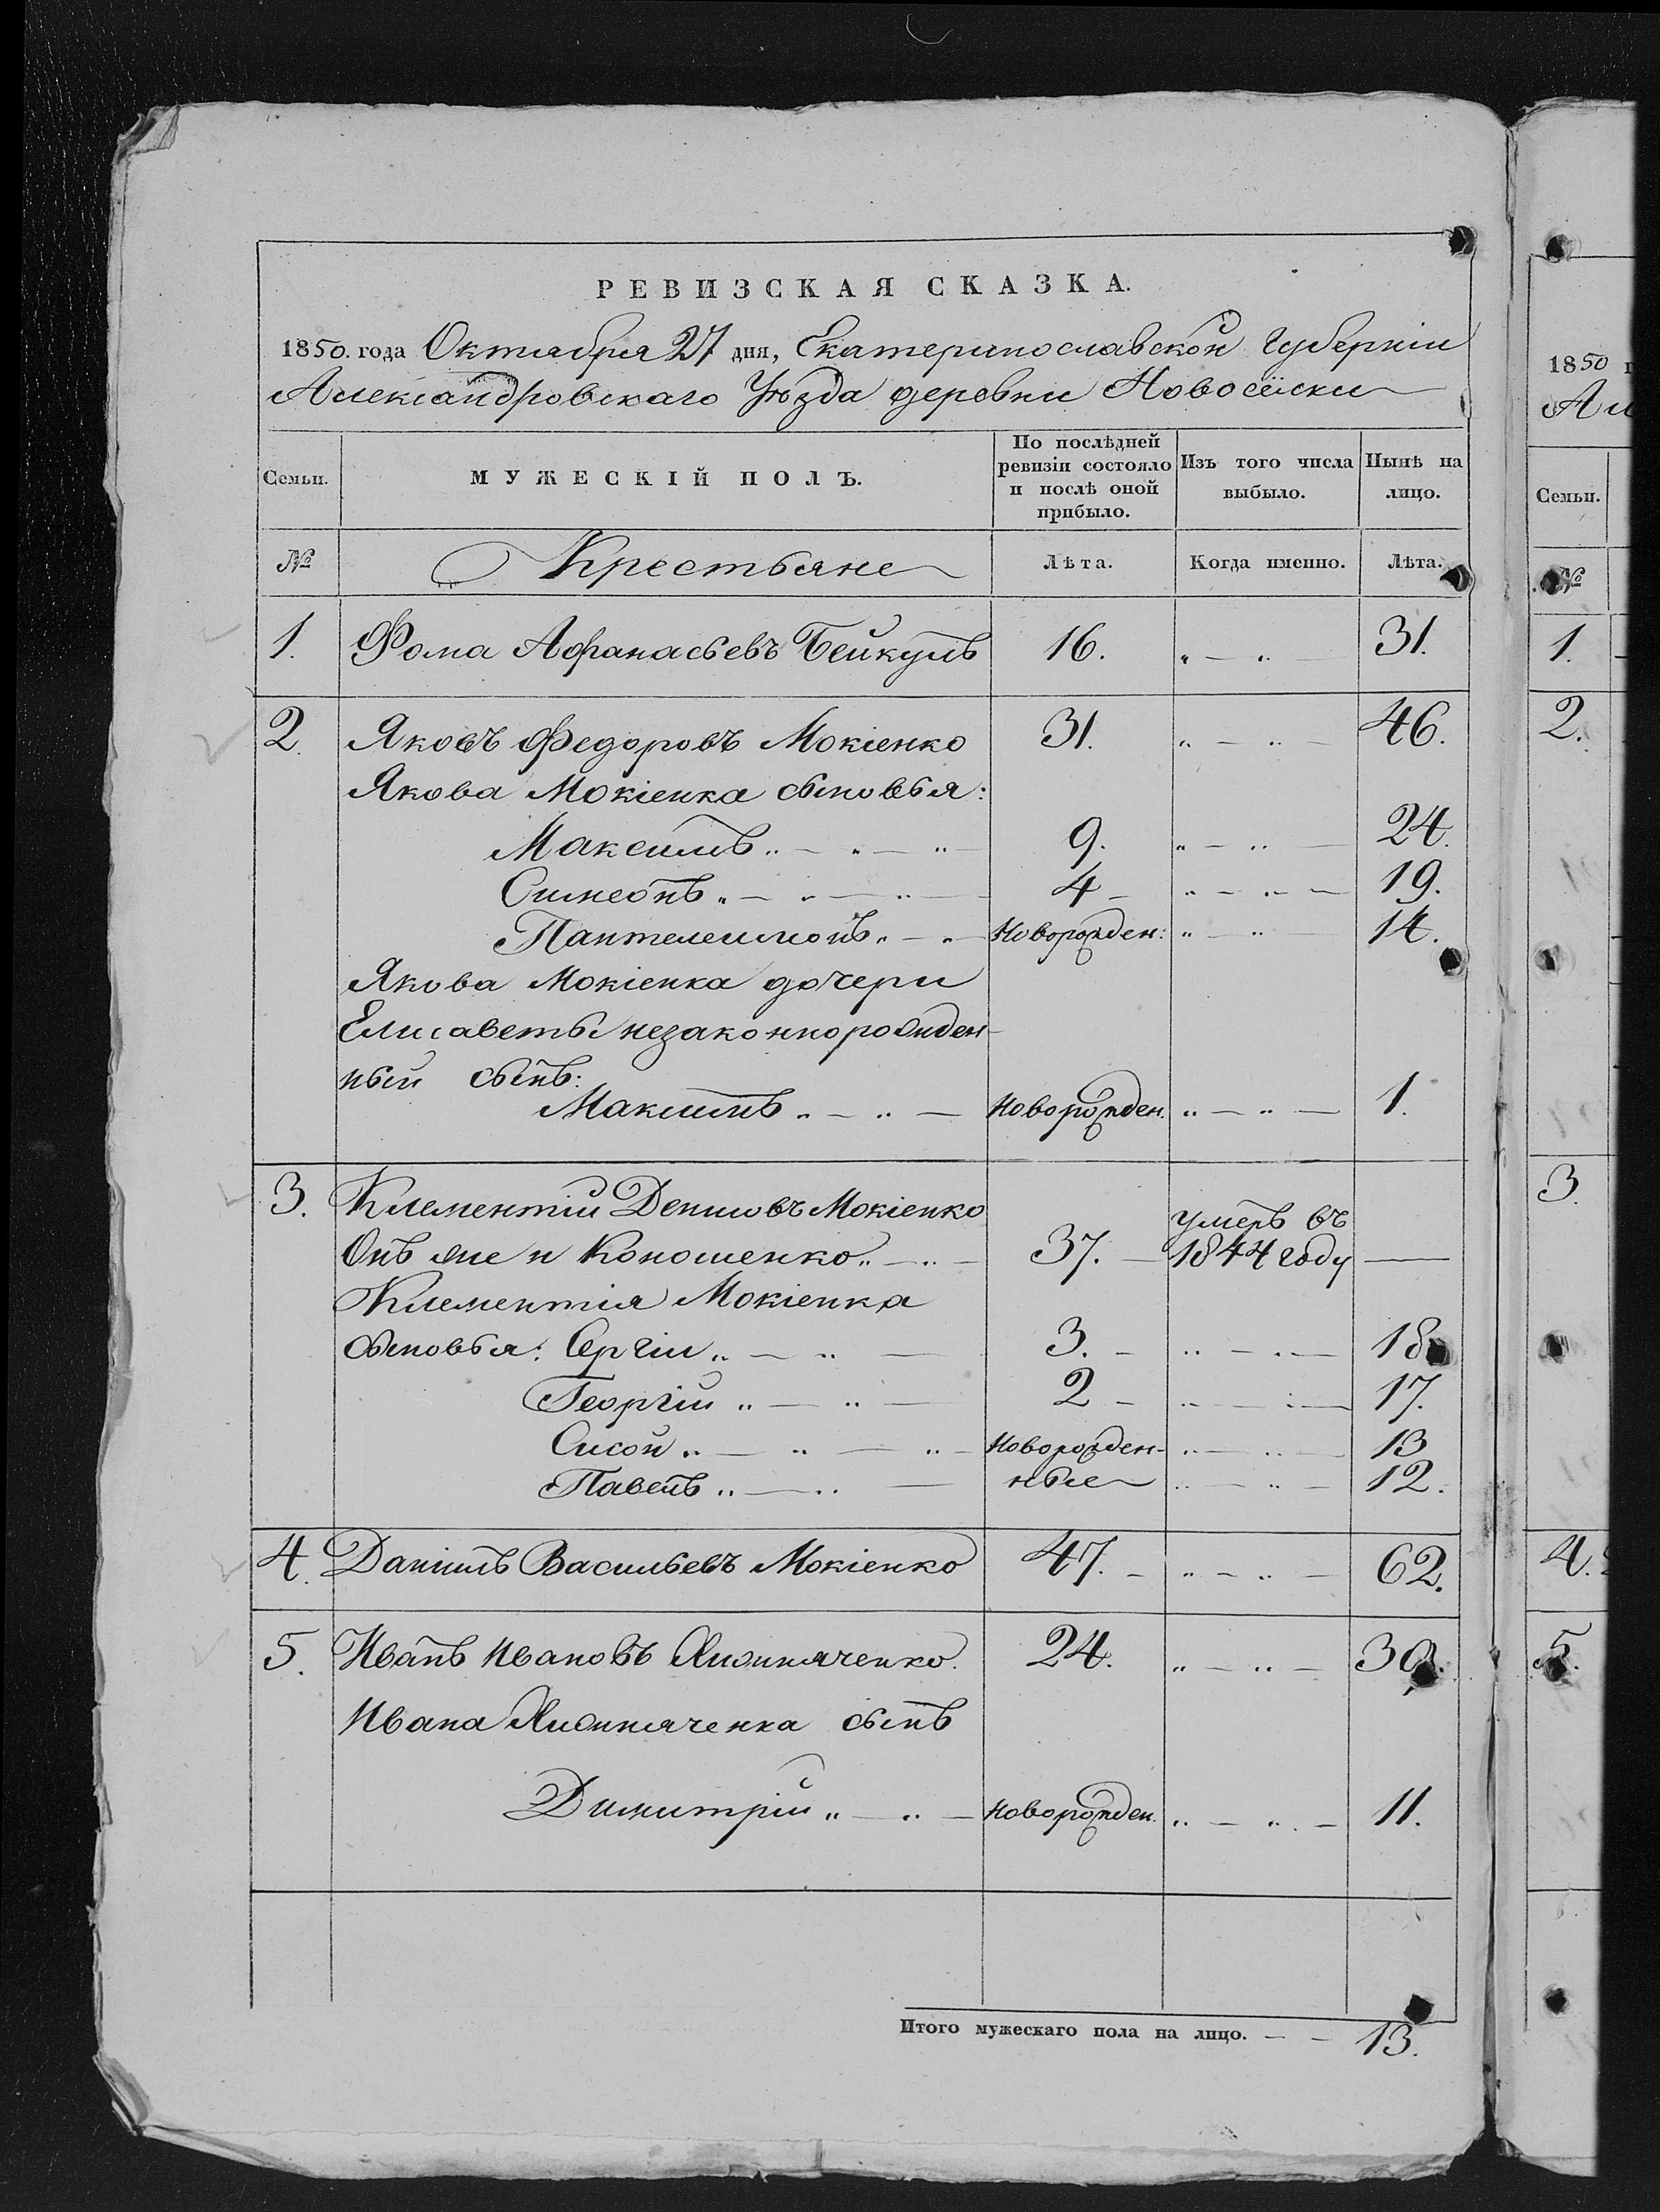 РЕВИЗСКАЯ СКАЗКА.
1850. года Октября 27 дня, Екатеринославской Губерніи
Александровскаго Уѣзда деревни Новосёлки
Семьи. МУЖЕСКІЙ ПОЛЪ. По послѣдней ревизіи состояло и послѣ оной прибыло. Изъ того числа выбыло. Нынѣ на лицо.
№ Крестьяне Лѣта. Когда именно. Лѣта.
1. Фома Афанасьевъ Бейкулъ 16. „ — „ — 31.
2. Яковъ Федоровъ Мокіенко 31. „ — „ — 46.
Якова Мокіенка сыновья:
Максимъ „ — „ — „ — 9. „ — „ — 24.
Симеонъ „ — „ — „ — 4 — „ — „ — 19.
Пантелеимонъ „ — „ — Новорожден: „ — „ — 14.
Якова Мокіенка дочери
Елисаветы незаконнорожден-
ный сынъ:
Максимъ „ — „ — Новорожден. „ — „ — 1.
3. Клементій Денисовъ Мокіенко
Онъ же и Кономенко „ — „ — 37. — умеръ въ 1844 году —
Клементія Мокіенка
сыновья: Сергій „ — „ — 3. — „ — „ — 18
Георгій „ — „ — 2 — „ — „ — 17.
Сисой „ — „ — „ — Новорожден- „ — „ — 13
Павелъ „ — „ — ные „ — „ — 12.
4. Даніилъ Васильевъ Мокіенко 47. — „ — „ — 62.
5. Иванъ Ивановъ 24. „ — „ — 39.
Ивана сынъ
Димитрій „ — „ — Новорожден. „ — „ — 11.
Итого мужескаго пола на лицо. — — 13.
1850
Ал
Семьи.
№
1.
2.
3.
4.
5.